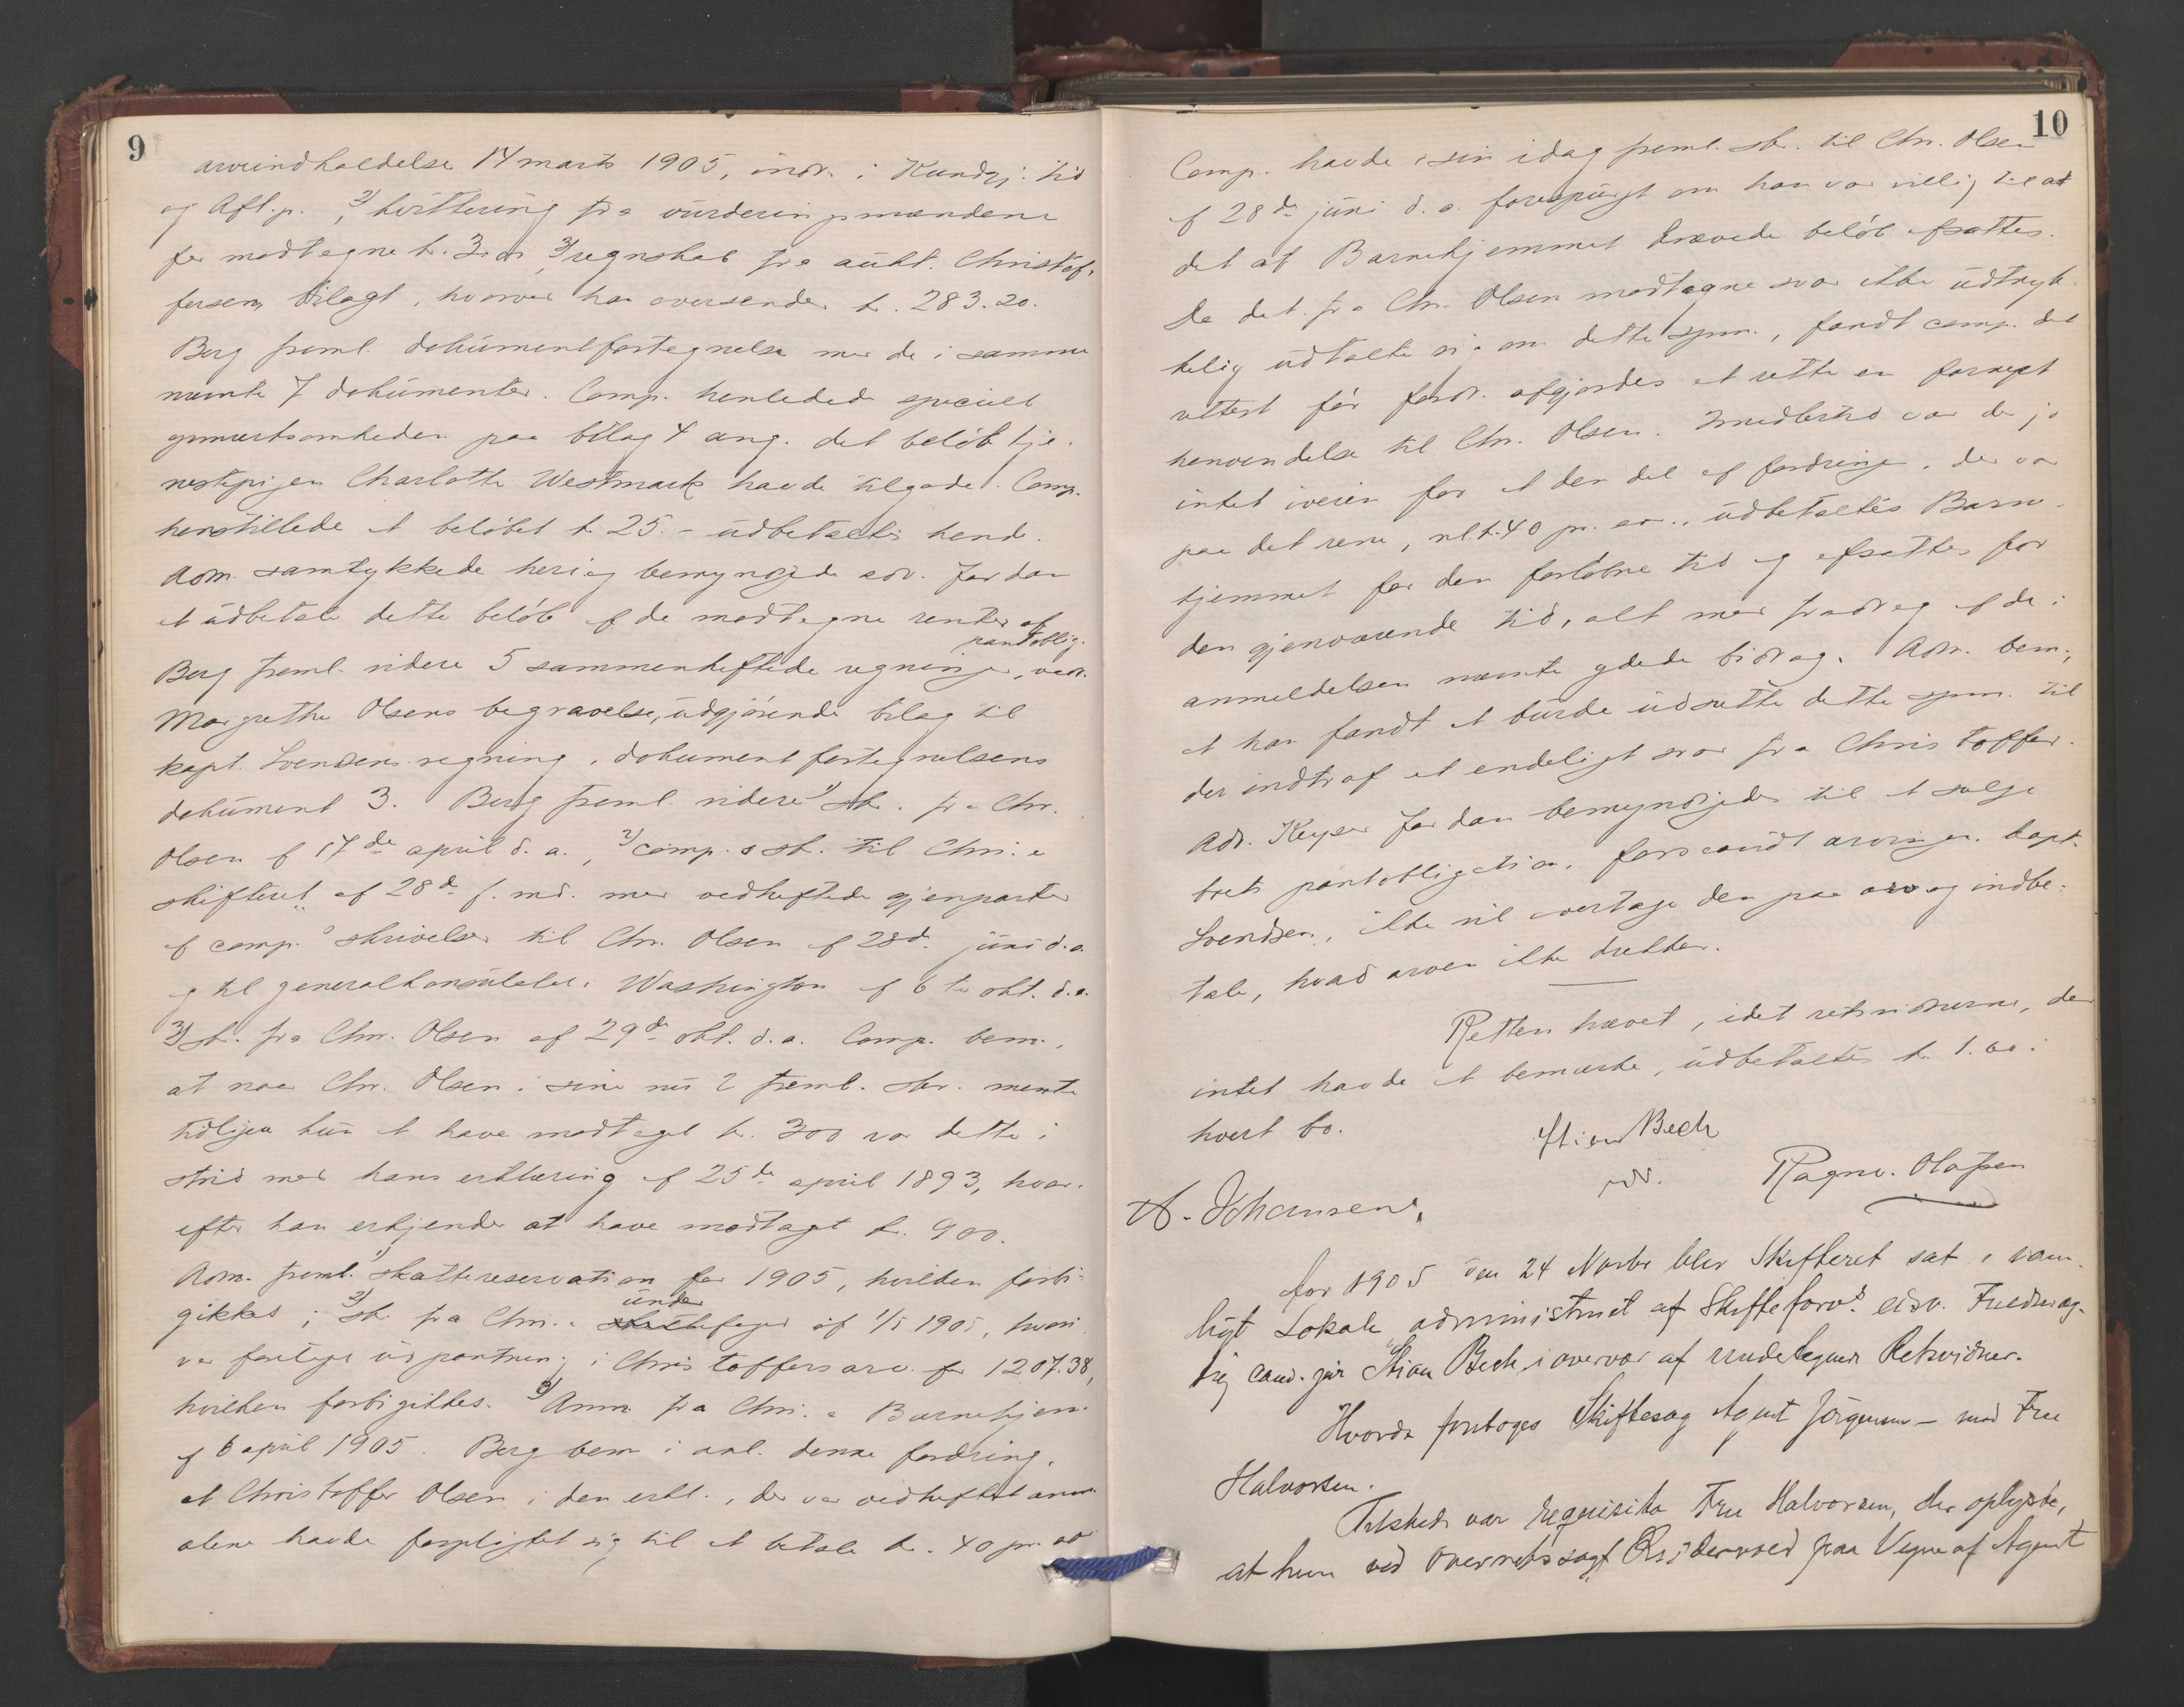 9
arveindkaldelse 14 marts 1905, indr. i Kundgj. tid
og Aft.p., 2) kvittering fra vurderingsmændene
for modtagne kr. 3.00 3) regnskab fra aukt. Christof-
fersen, bilagt, hvorved han oversender kr. 283.20.
Berg freml. dokumentfortegnelse med de i samme
nævnte 7 dokumenter. Comp. henledede specielt
opmærksomheden paa bilag 4 ang. det beløb tje-
nestepigen Charlotte Westmark havde tilgode. Comp.
henstillede at beløbet kr 25.- udbetaltes hende.
Adm. samtykkede heri og bemyndigede adv. Jordan
at udbetale dette beløb af de modtagne renter af
pantoblig.
Berg freml. videre 5 sammenheftede regninger, vedr.
Margrethe Olsens begravelse, udgjørende bilag til
kapt. Svendsens regning, dokumentfortegnelsens
dokument 3. Berg freml. videre 1) skr. fra Chr.
Olsen af 17de april d.a., 2) comp.s skr. til Chr.a
skifteret af 28de f. md. med vedheftede gjenparter
af comp.s skrivelser til Chr. Olsen af 28de juni d.a.
og til generalkonsulatet i Washington af 6te okt. d.a.
3) skr. fra Chr. Olsen af 29de okt. d.a. Comp. bem.,
at naar Chr. Olsen i sine nu 2 freml. skr. mente
tidligere kun at have modtaget kr. 300 var dette i
strid med hans erklæring af 25de april 1893, hvor-
efter han erkjender at have modtaget kr. 900.
Adm. freml. 1) skattereservation for 1905, hvilken forbi-
gikkes; 2) skr. fra Chr.a underfoged af 1/5 1905, hvori
var foretaget udpantning i Christoffers arv for 1207.38,
hvilken forbigikkes. 3) Anm. fra Chr.a Barnehjem
af 6 april 1905. Berg bem. i anl. denne fordring,
at Christoffer Olsen i den erkl., der var vedheftet anm.
alene havde forpligtet sig til at betale kr. 40 pr. aar
10
Comp. havde i sin idag freml. skr. til Chr. Olsen
af 28de juni d.a. forespurgt om han var villig til at
det af Barnehjemmet krævede beløb afsattes.
Da det fra Chr. Olsen modtagne svar ikke udtryk-
kelig udtalte sig om dette spm., fandt comp. det
rettest før fordr. afgjordes at rette en fornyet
henvendelse til Chr. Olsen. Imidlertid var der jo
intet iveien for at den del af fordringen, der var
paa det rene, nl. kr. 40 pr. aar, udbetaltes Barne-
hjemmet for den forløbne tid og afsattes for
den gjenværende tid, alt med fradrag af de i
anmeldelsen nævnte ydede bidrag. Adm. bem.,
at han fandt at burde udsætte dette spm. til
der indtraf et endeligt svar fra Christoffer.
Adv. Keyser Jordan bemyndigedes til at sælge
boets pantobligation, forsaavidt arvingen, kapt.
Svendsen, ikke vil overtage den paa arv og indbe-
tale, hvad arven ikke dækker.
Retten hævet, idet retsvidnerne, der
intet havde at bemærke, udbetaltes kr. 1.60 i
hvert bo.
Stian Bech
A. Johansen.
Ragnv. Olafsen
Aar 1905 den 24 Novbr blev Skifteret sat i van-
ligt Lokale, administreret af Skifteforv.s edsv. Fuldmæg-
tig cand. jur Stian Bech i overvær af undertegnede Retsvidner.
Hvorda foretoges Skiftesag Agent Jörgensen – mod Fru
Halvorsen.
Tilstede var requisita Fru Halvorsen, der oplyste,
at hun ved Overretssagf. paa Vegne af Agent